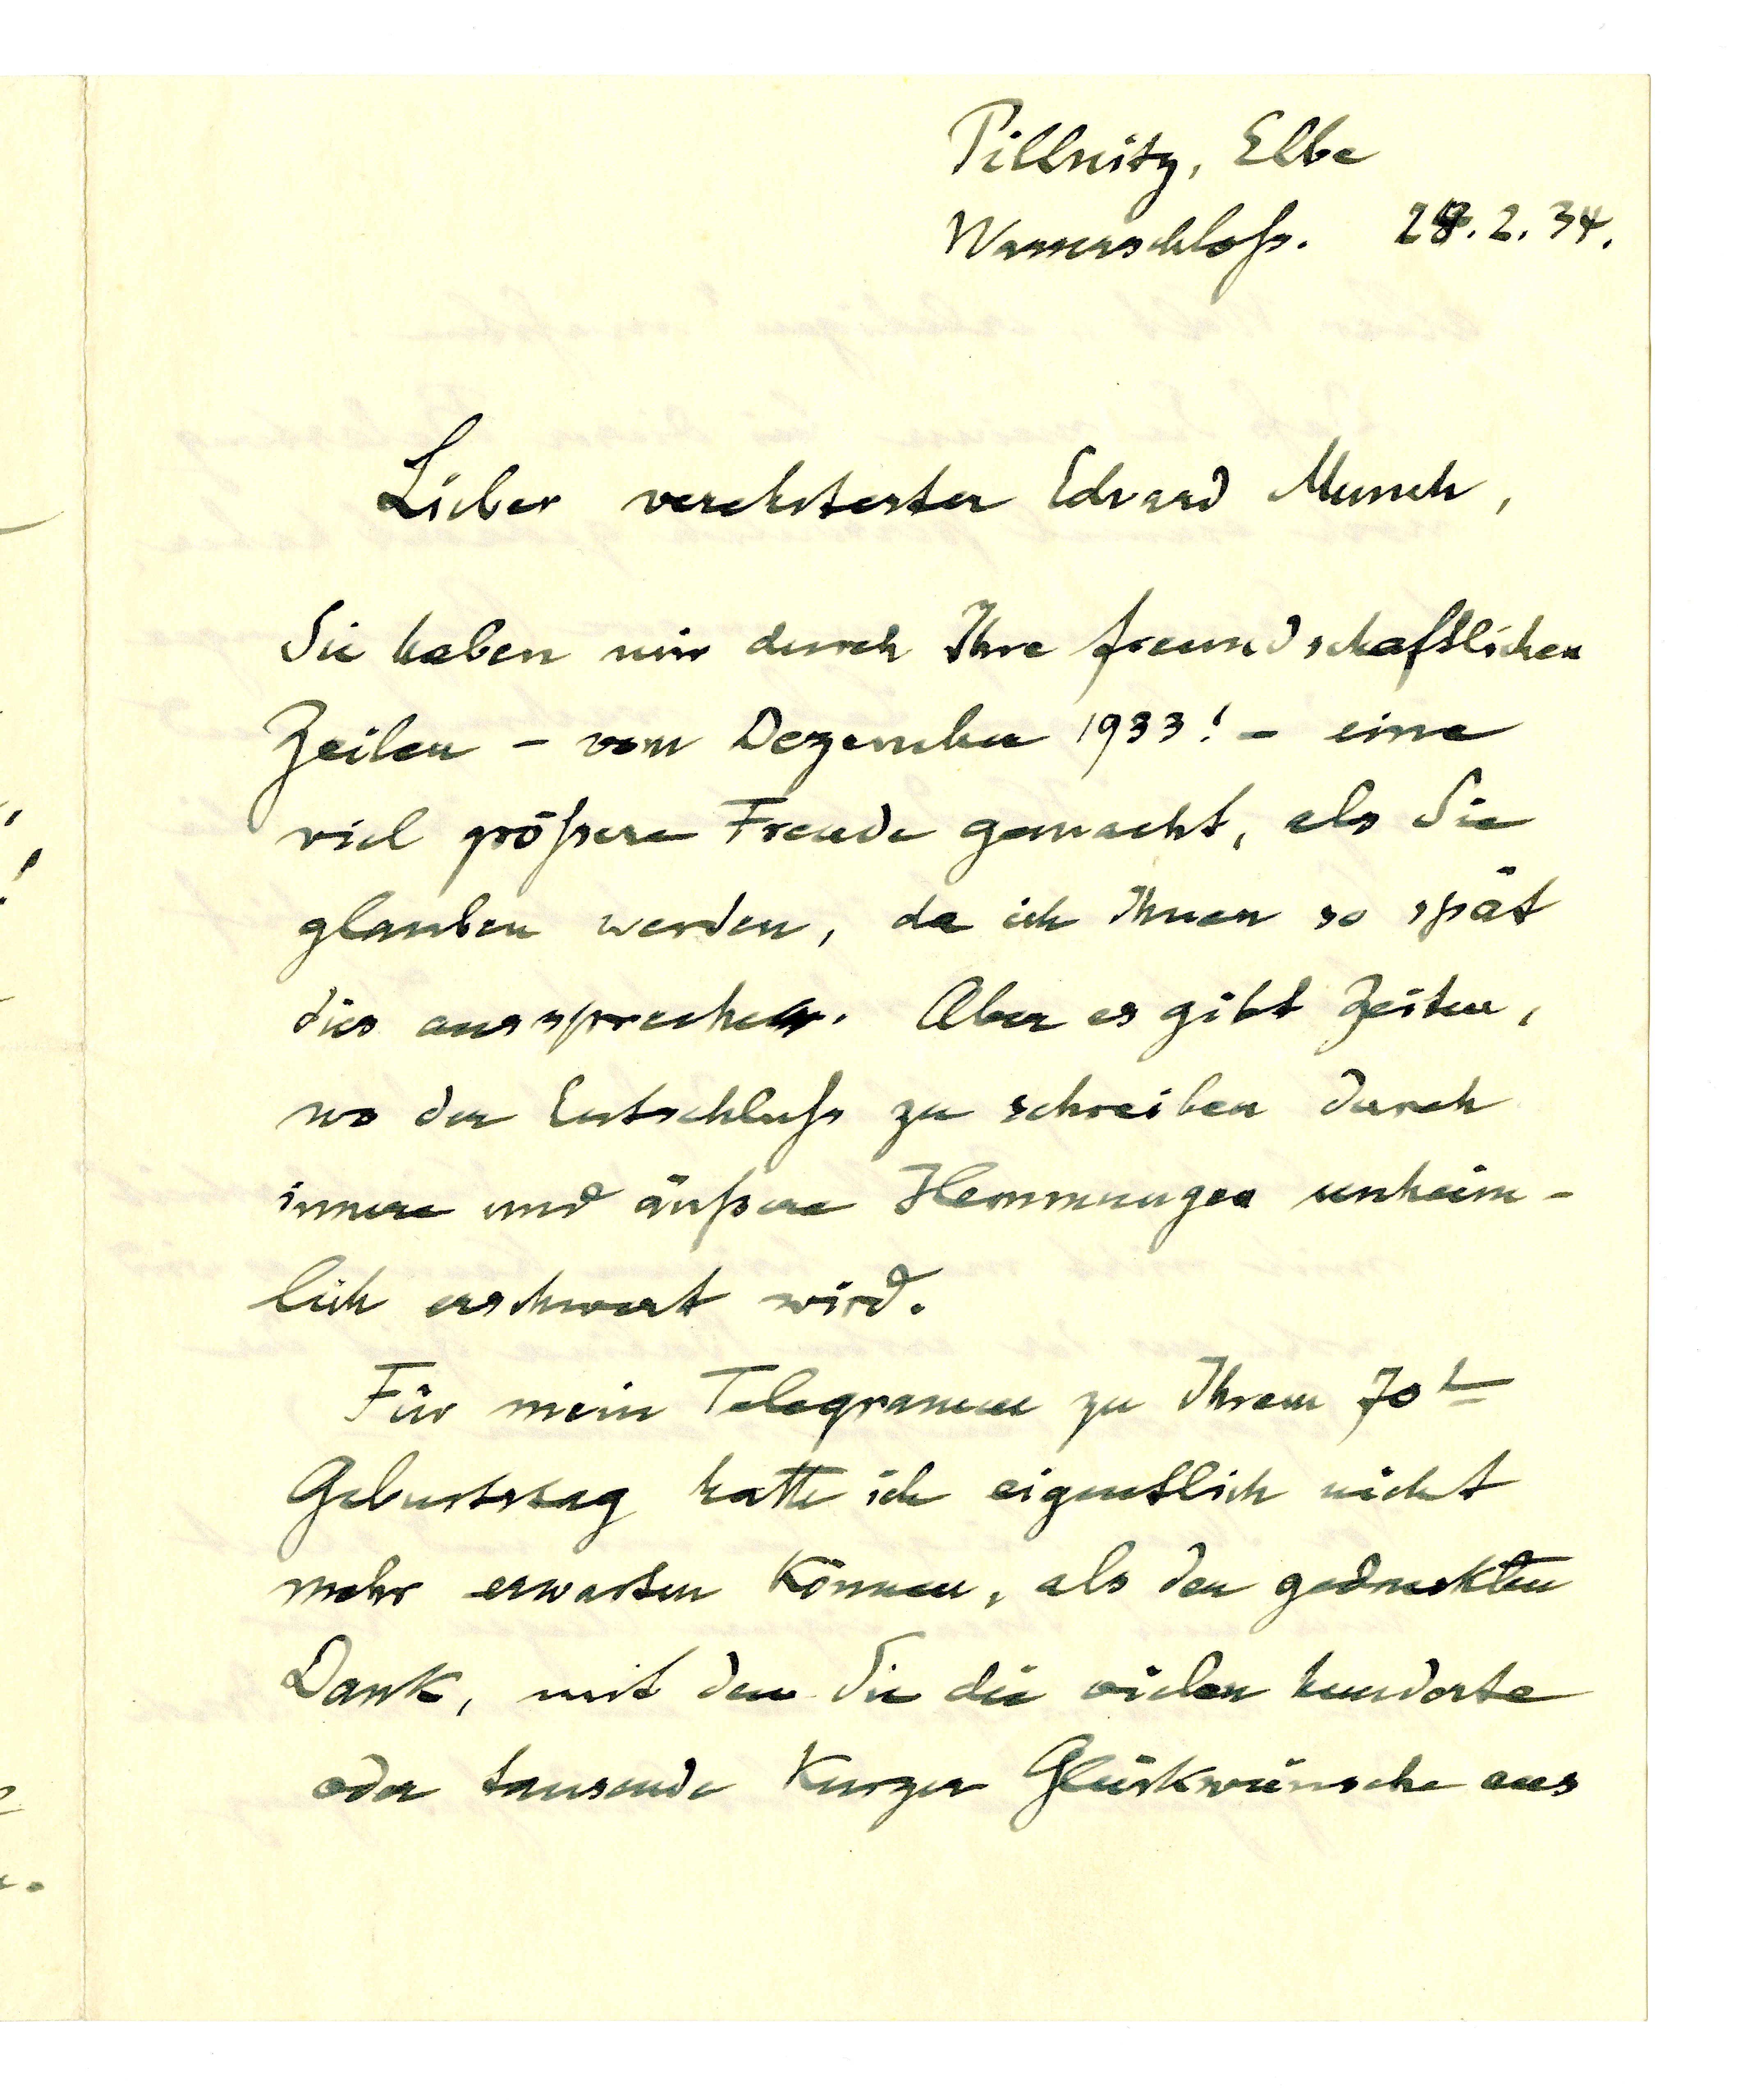 Pillnitz, Elbe
Wasserschloß. 28.2.34.
Lieber verehrtester Edvard Munch,
Sie haben mir durch Ihre freundschaftlichen
Zeilen – vom Dezember 1933! – eine
viel größere Freude gemacht, als Sie
glauben werden, da ich Ihnen so spät
dies ausspreche. Aber es gibt Zeiten,
wo der Entschluß zu schreiben durch
innere und äußere Hemmungen unheim-
lich erschwert wird.
Für mein Telegramm zu Ihrem 70t
Geburtstag hatte ich eigentlich nicht
mehr erwarten können, als den gedruckten
Dank, mit dem Sie die vielen hunderte
oder tausende kurzer Glückwünsche aus